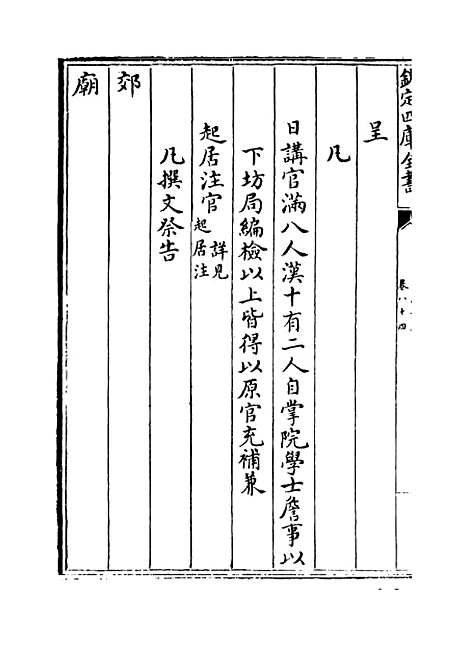 欽定四庫全書
卷八十四
呈
凡
日講官滿八人漢十有二人自掌院學士詹事以
下坊局編檢以上皆得以原官充補兼
起居注官詳見起居注
凡撰文祭告
郊
廟